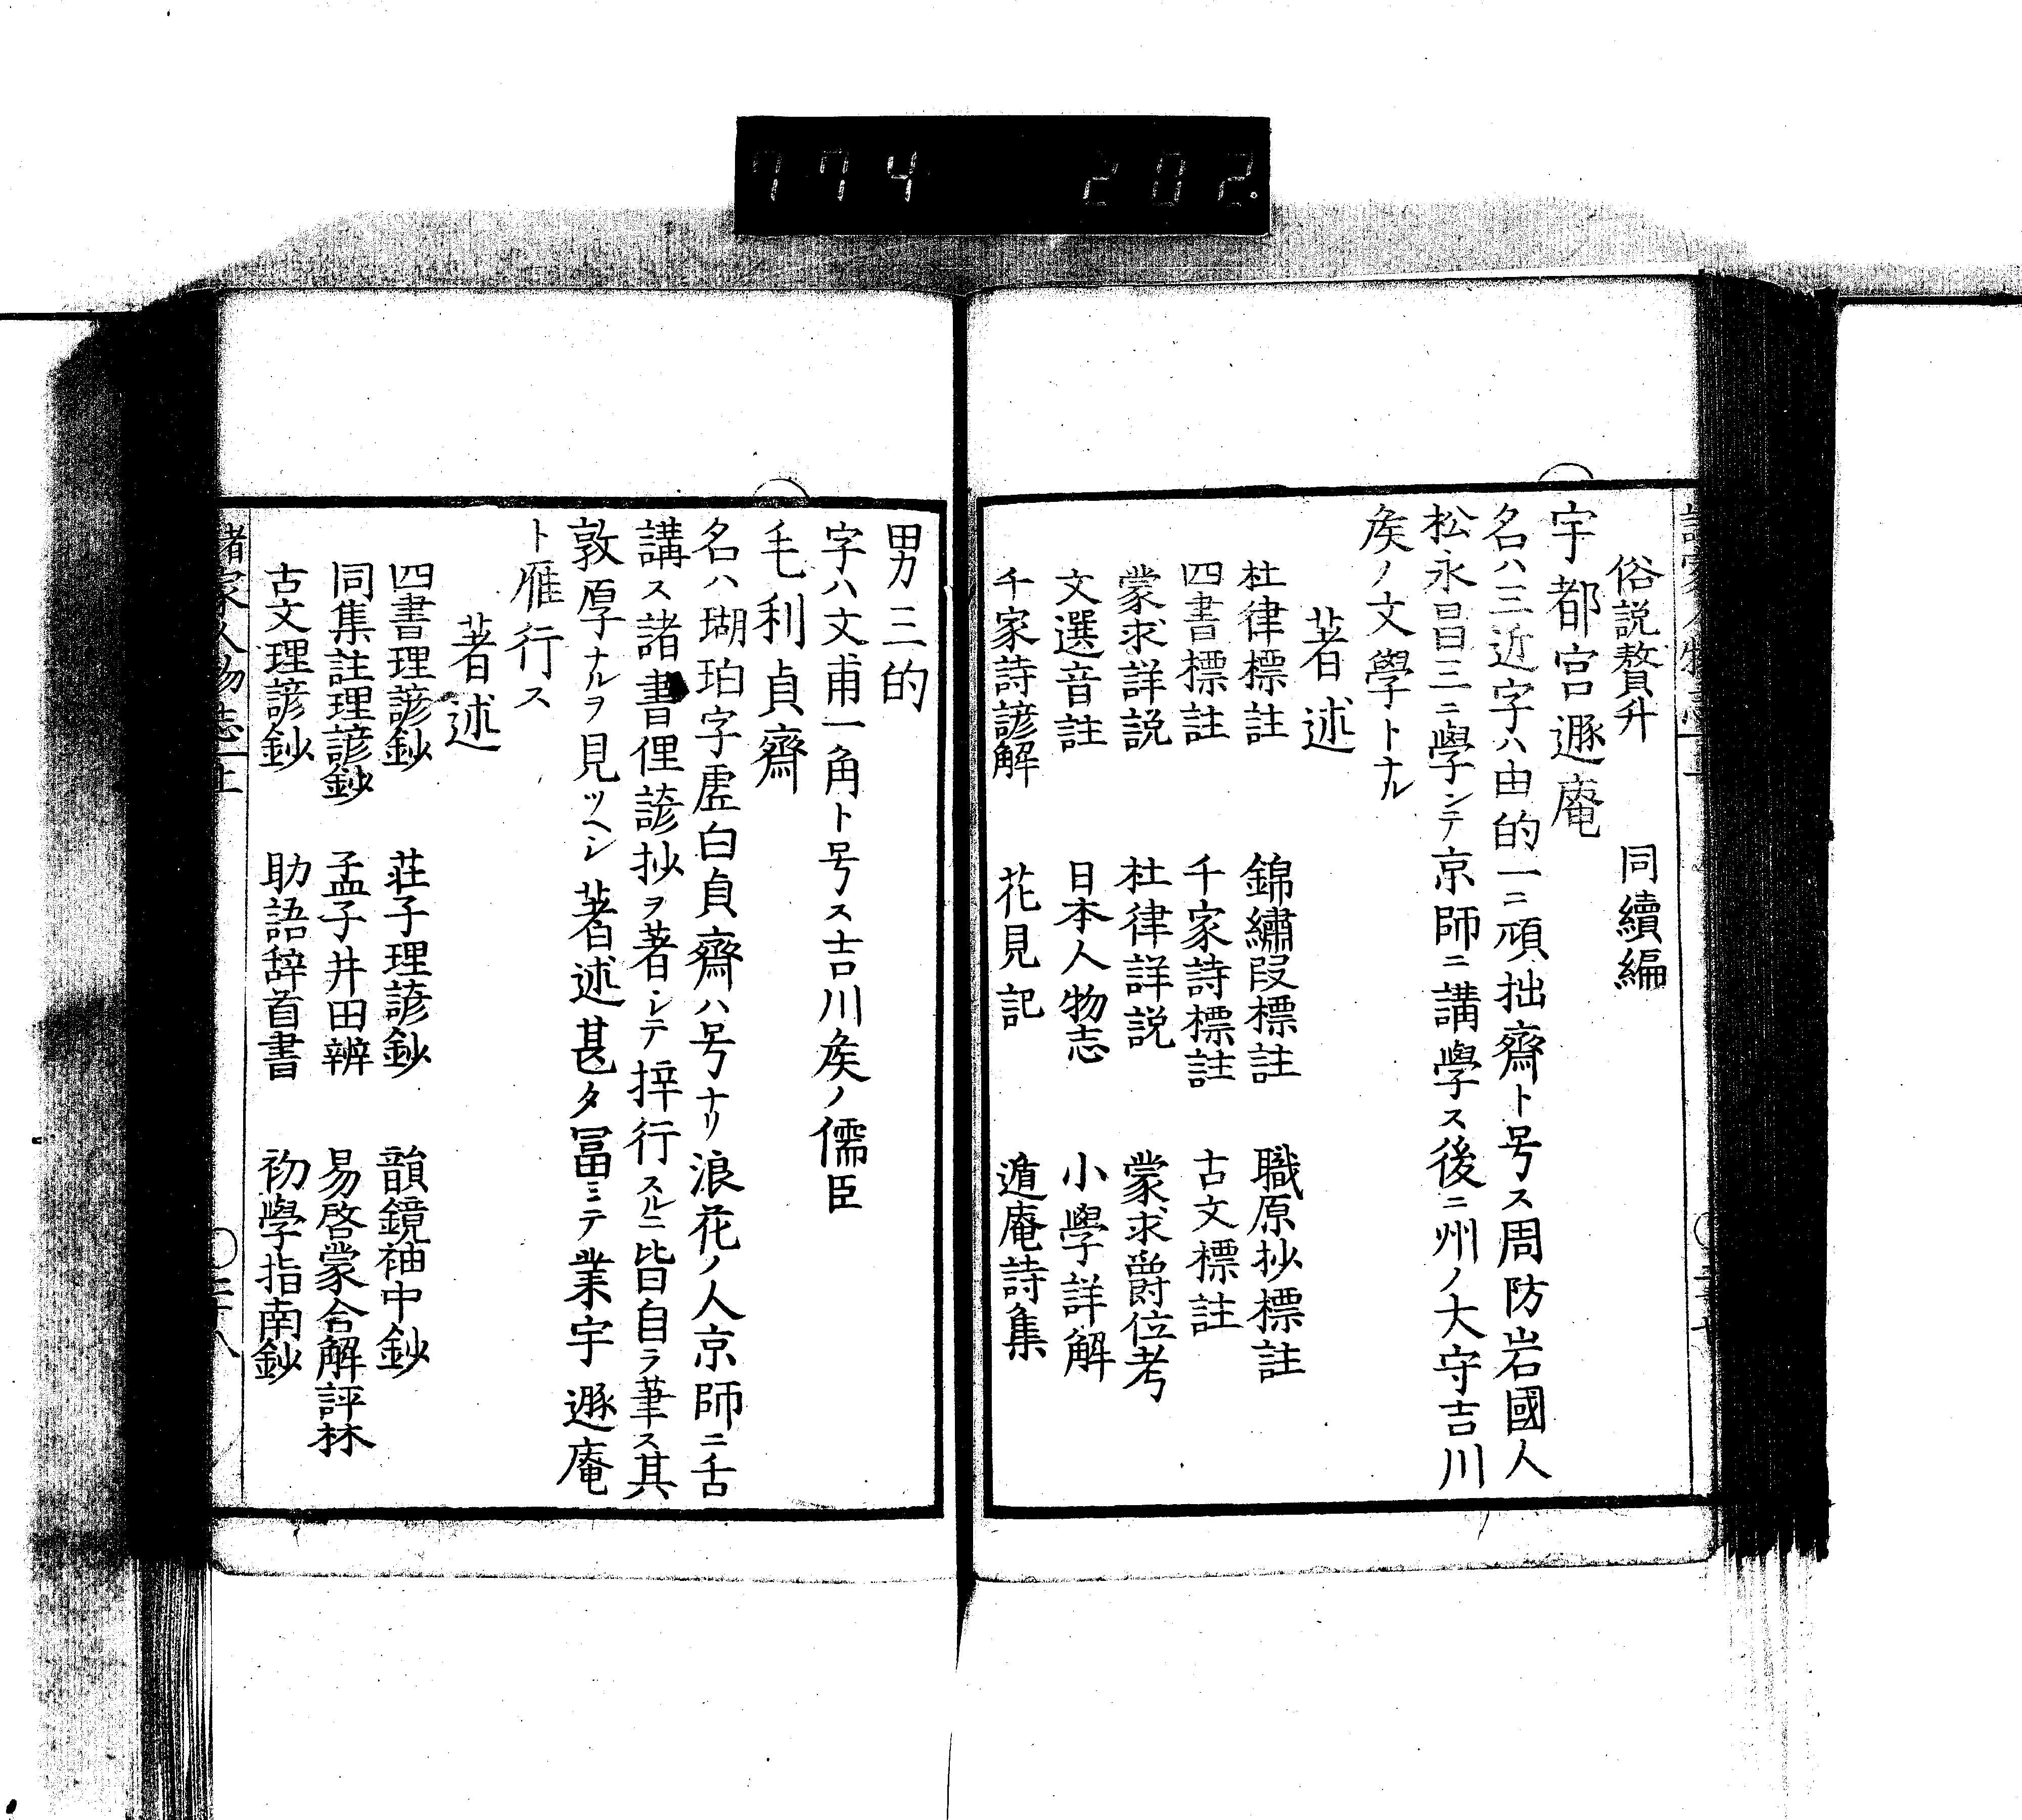 774 202
俗説贅弁 同續編
宇都宮遯庵
名ハ三近字ハ由的一ニ頑拙齋ト号ス周防岩國人
松永昌三ニ學ンテ京師ニ講學ス後ニ州ノ大守吉川
矦ノ文學トナル
著述
杜律標註 錦繡段標註 職原抄標註
四書標註 千家詩標註 古文標註
蒙求詳説 杜律詳説 蒙求爵位考
文選音註 日本人物志 小學詳解
千家詩諺解 花見記 遁庵詩集
男三的
字ハ文甫一角ト号ス吉川矦ノ儒臣
毛利貞齋
名ハ瑚珀字虚白貞齋ハ号ナリ浪花ノ人京師ニ舌
講ス諸書俚諺抄ヲ著シテ梓行スルニ皆自ラ筆ス其
敦厚ナルヲ見ツヘシ著述甚タ冨ミテ業宇遯庵
ト雁行ス
著述
四書理諺鈔 荘子理諺鈔 韻鏡袖中鈔
同集註理諺鈔 孟子井田辨 易啓蒙合解評林
古文理諺鈔 助語辞首書 初學指南鈔
諸家人物志 上